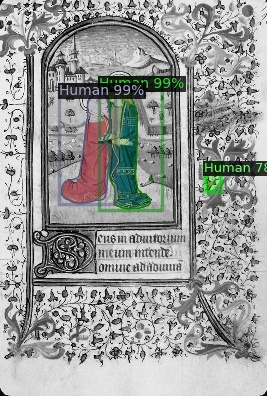 Human 99%
Human 99%
Human 78
Deus in adiutorium
meum intende
omine ad adiuua